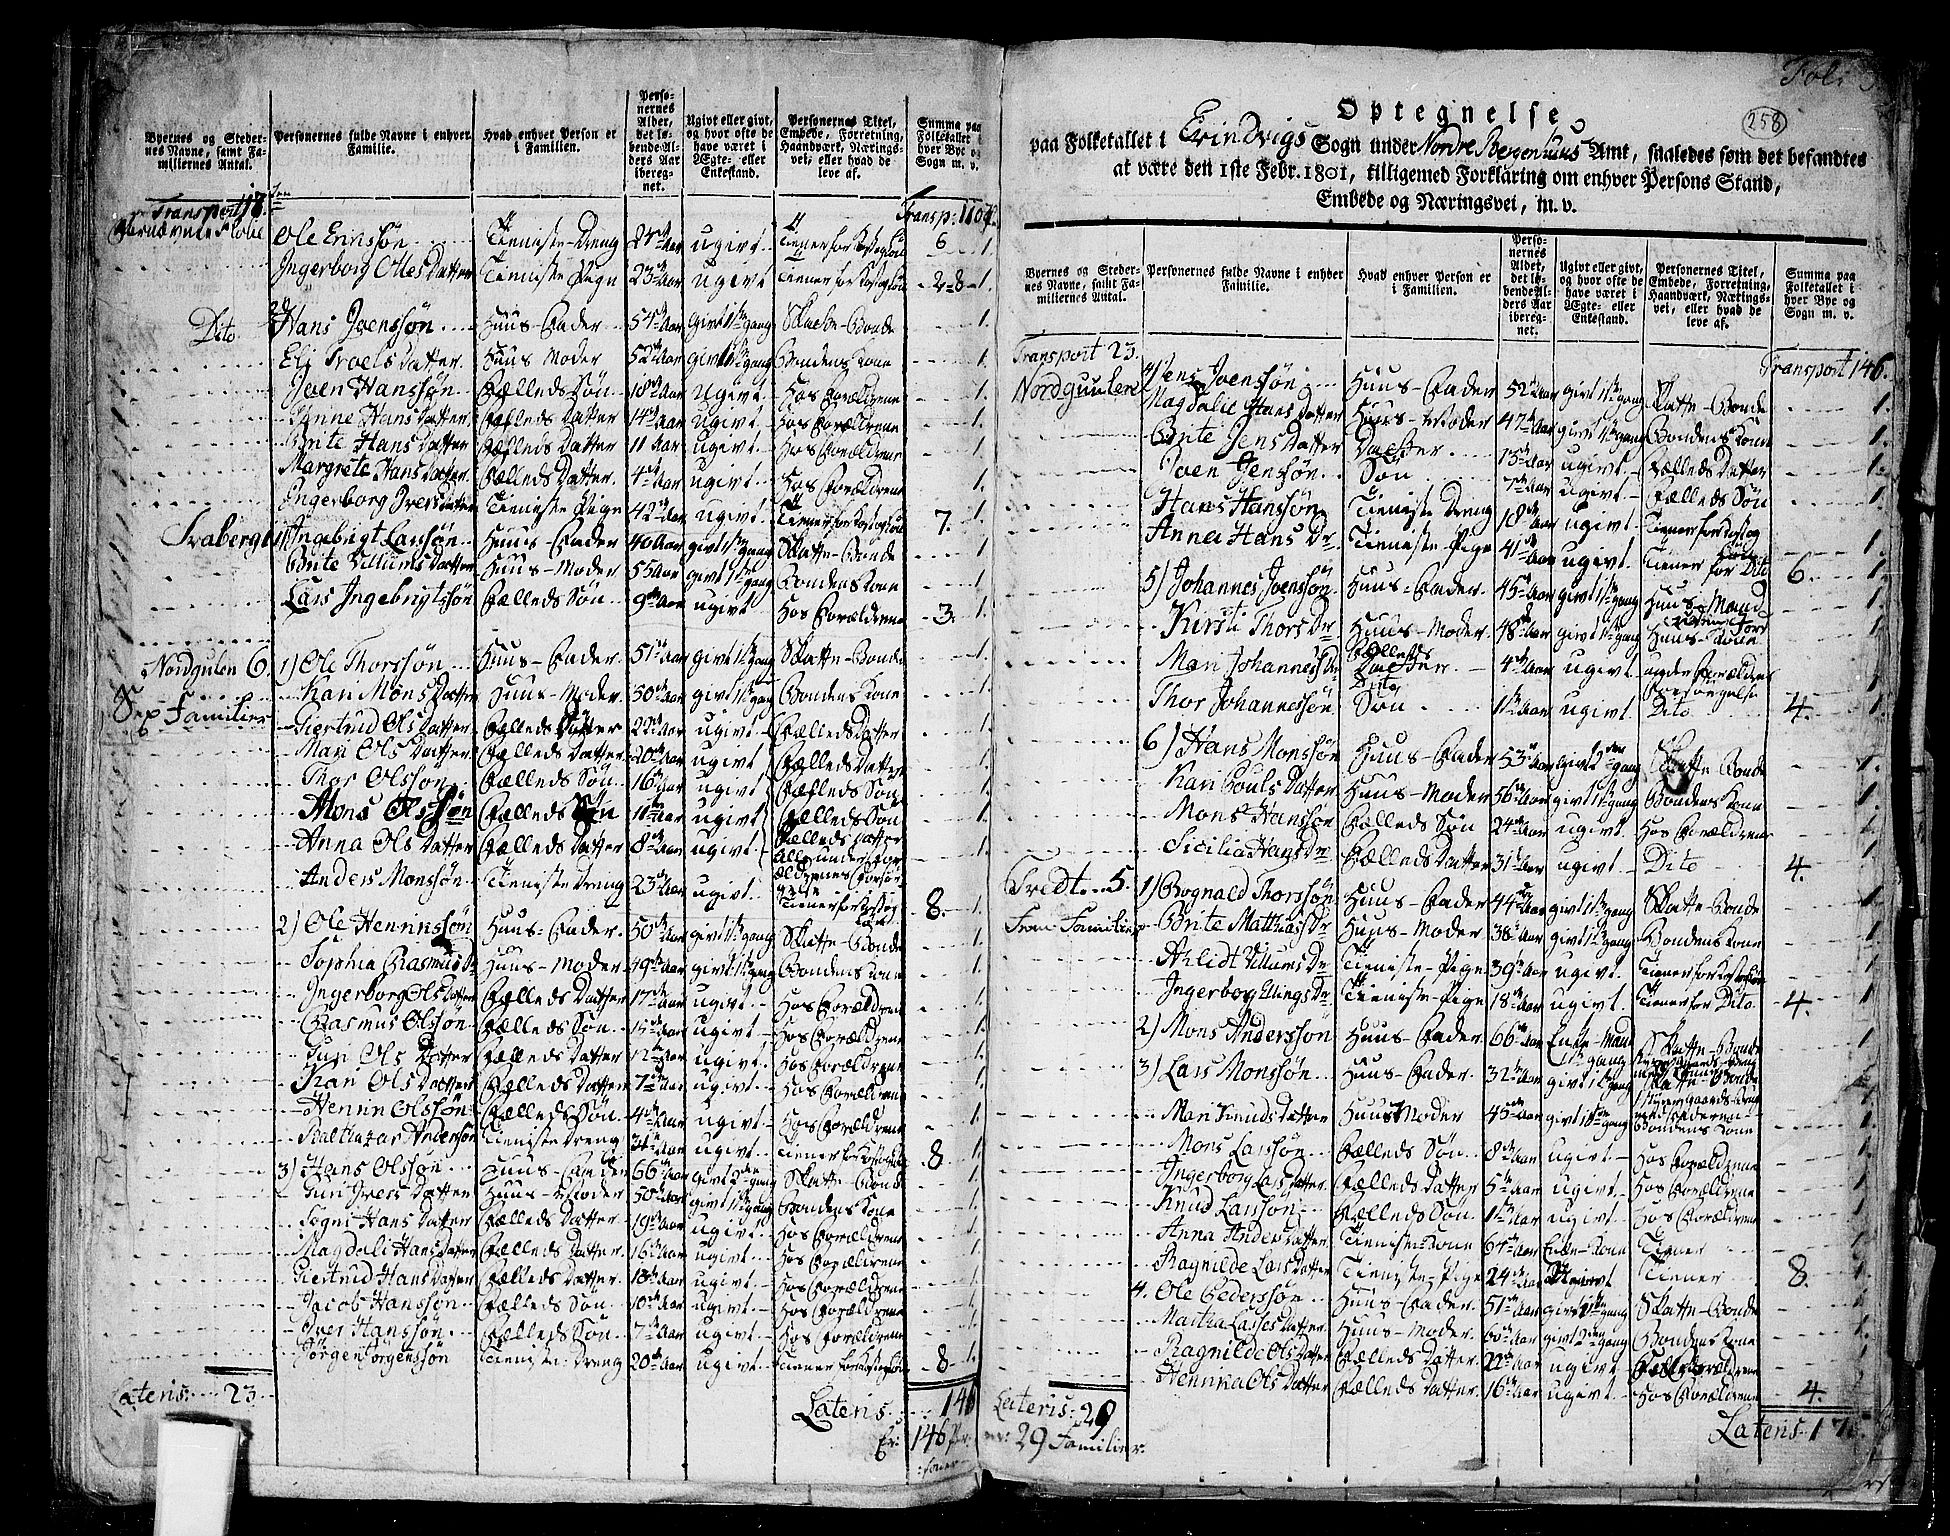 Byernes og Steder-
nes Navne, samt Fa-
miliernes Antal.
Personernes fulde Navne i enhver
Familie.
Hvad enhver Person er
i Familien.
Perso-
nernes
Alder,
det lø-
bende Al-
ders Aar
iberegn-
net.
Ugivt eller givt,
og hvor ofte de
have været i
Ægte- eller
Enkestand.
Personernes Titel,
Embede, Forretning,
Haandværk, Nærings-
vei, eller hvad de
leve af.
Summa paa
Folketallet i
hver Bye og
Sogn m. v.
Transport 18. Transp:
Ole Erikssøn Tieniste-Dreng 24de Aar ugivt Tiener for Kost og Løn 6 1.
Ingerborg Olles Datter Tieniste Pige 23de Aar ugivt Tiener for Kost og Løn 2-8 1.
Dito 2) Hans Joenssøn Huus-Fader 54de Aar givt 1ste gang Skatte-Bonde 1.
Eli Troels Datter Huus Moder 52de Aar givt 1ste gang Bondens Kone 1.
Joen Hanssøn Fælleds Søn 18de Aar ugivt Hos Forældrene 1.
Anne Hans Datter Fælleds Datter 14de Aar ugivt Hos Forældrene 1.
Brite Hans Datter Fælleds Datter 11 Aar ugivt Hos Forældrene 1.
Margrete Hans Datter Fælleds Datter 4de Aar ugivt Hos Forældrene 1.
Ingerborg Ivers Datter Tieniste Pige 42de Aar ugivt Tiener for Kost og Løn 7. 1.
Svaberg 1) Ingebrigt Larssøn Huus-Fader 40 Aar givt 1ste gang Skatte-Bonde 1.
Brite Villums Datter Huus-Moder 55 Aar givt 1ste gang Bondens Kone 1.
Lars Ingebrigtssøn Fælleds Søn 9de Aar ugivt Hos Forældrene 3. 1.
Nordgulen 6. 1) Ole Thorssøn Huus-Fader 51de Aar givt 1ste gang Skatte-Bonde 1.
Sex Familier Kari Mons Datter Huus-Moder 50de Aar givt 1ste gang Bondens Kone 1.
Giertrud Ols Datter Fælleds Datter 22de Aar ugivt Fælleds Datter 1.
Mari Ols Datter Fælleds Datter 20de Aar ugivt Fælleds Datter 1.
Thor Olssøn Fælleds Søn 16de Aar ugivt Fælleds Søn 1.
Mons Olssøn Fælleds Søn 11te Aar ugivt Fælleds Søn 1.
Anna Ols Datter Fælleds Datter 8de Aar ugivt Fælleds Datter
Alle under For-
ældrenes Forsør-
gelse
Anders Monssøn Tieniste Dreng 23de Aar ugivt Tiener for Kost og Løn 8. 1.
2) Ole Henrikssøn Huus-Fader 50de Aar givt 1ste gang Skatte-Bonde 1.
Sophia Rasmus Dr Huus-Moder 49de Aar givt 1ste gang Bondens Kone 1.
Ingerborg Ols Datter Fælleds Datter 17de Aar ugivt Hos Forældrene 1.
Rasmus Olssøn Fælleds Søn 15de Aar ugivt Hos Forældrene 1.
Guri Ols Datter Fælleds Datter 12te Aar ugivt Hos Forældrene 1.
Kari Ols Datter Fælleds Datter 7de Aar ugivt Hos Forældrene 1.
Henrik Olssøn Fælleds Søn 4de Aar ugivt Hos Forældrene 1.
Balthazar Anderssøn Tieniste Dreng 34de Aar ugivt Tiener for Kost og Løn 8. 1.
3) Hans Olssøn Huus-Fader 66de Aar givt 2den gang Skatte-Bonde 1.
Guri Ivers Datter Huus-Moder 50de Aar givt 1ste gang Bondens Kone 1.
Sogni Hans Datter Fælleds Datter 19de Aar ugivt Hos Forældrene 1.
Magdeli Hans Datter Fælleds Datter 16de Aar ugivt Hos Forældrene 1.
Giertrud Hans Datter Fælleds Datter 18de Aar ugivt Hos Forældrene 1.
Jacob Hanssøn Fælleds Søn 10de Aar ugivt Hos Forældrene 1.
Iver Hanssøn Fælleds Søn 7de Aar ugivt Hos Forældrene 1.
Jørgen Jørgenssøn Tieniste-Dreng 20de Aar ugivt Tiener for Kost og Løn 8 1.
Lateris: 23. Lateris 146
Er: 146 Per-
soner
Foli
258
Optegnelse
paa Folketallet i Evindvigs Sogn under Nordre Bergenhuus Amt, saaledes som det befandtes
at være den 1ste Febr. 1801, tilligemed Forklaring om enhver Persons Stand,
Embede og Næringsvei, m. v.
Byernes og Steder-
nes Navne, samt Fa-
miliernes Antal.
Personernes fulde Navne i enhver
Familie.
Hvad enhver Person er
i Familien.
Perso-
nernes
Alder,
det lø-
bende Al-
ders Aar
iberegn-
net.
Ugivt eller givt,
og hvor ofte de
have været i
Ægte- eller
Enkestand.
Personernes Titel,
Embede, Forretning,
Haandværk, Nærings-
vei, eller hvad de
leve af.
Summa paa
Folketallet i
hver Bye og
Sogn m. v.
Transport 23. Transport 146.
Nordguulen 4) Jens Joenssøn Huus-Fader 52de Aar givt 1ste gang Skatte-Bonde 1.
Magdalie Hans Datter Huus-Moder 47de Aar givt 1ste gang Bondens Kone 1.
Brite Jens Datter Datter 15de Aar ugivt Fælleds Datter 1.
Joen Jenssøn Søn 7de Aar ugivt Fælleds Søn 1.
Hans Hanssøn Tieniste Dreng 18de Aar ugivt Tiener for Kost og Løn 1.
Anna Hans Dr Tieniste-Pige 41de Aar ugivt Tiener for Dito 6. 1.
5) Johannes Joenssøn Huus-Fader 45de Aar givt 1ste gang Huus-Mand 1.
Kirsti Thors Dr Huus-Moder 48de Aar givt 1ste gang Huus-Kone 1.
Mari Johannes Dr Fælleds Datter 4de Aar ugivt under Forældrenes Forsørgelse 1.
Thor Johannessøn Dito Søn 1ste Aar ugivt Dito 4. 1.
6) Hans Monssøn Huus-Fader 53de Aar givt 2den gang Skatte-Bonde 1.
Kari Pouls Datter Huus-Moder 56de Aar givt 1ste gang Bondens Kone 1.
Mons Hanssøn Fælleds Søn 24de Aar ugivt Hos Forældrene 1.
Sicilia Hans Dr Fælleds Datter 31te Aar ugivt Dito 4. 1.
Tredt 5. 1) Rognald Thorssøn Huus-Fader 44de Aar givt 1ste gang Skatte-Bonde 1.
Fem Familier Brite Matthias Dr Huus-Moder 38de Aar givt 1ste gang Bondens Kone 1.
Arlidt Villums Dr Tieniste-Pige 39de Aar ugivt Tiener for Kost og Løn 1.
Ingerborg Dr Tieniste-Pige 18de Aar ugivt Tiener for Dito 4. 1.
2) Mons Anderssøn Huus-Fader 66de Aar Enke-Mand 1ste gang Skatte-Bonde 1.
3) Lars Monssøn Huus-Fader 32te Aar givt 1ste gang Skatte-Bonde 1.
Mari Knuds Datter Huus Moder 45de Aar givt 1ste gang Bondens Kone 1.
Mons Larssøn Fælleds Søn 8de Aar ugivt Hos Forældrene 1.
Ingerborg Lars Datter Fælleds Datter 5te Aar ugivt Hos Forældrene 1.
Knud Larssøn Fælleds Søn 1ste Aar ugivt Hos Forældrene 1.
Anna Anders Datter Tieniste-Kone 67de Aar Enke-Kone Tiener 1.
Ragnilde Lars Datter Tieniste-Pige 24de Aar Ugivt Tiener 8. 1.
4. Ole Pederssøn Huus-Fader 51de Aar givt 1ste gang Skatte-Bonde 1.
Martha Lasses Datter Huus-Moder 60de Aar givt 2den gang Bondens Kone 1.
Ragnilde Ols Datter Fælleds Datter 22de Aar ugivt Hos Forældrene 1.
Hennika Ols Datter Fælleds Datter 16de Aar ugivt Hos Forældrene 4. 1.
Lateris: 29 Lateris
er: 29 Familier.